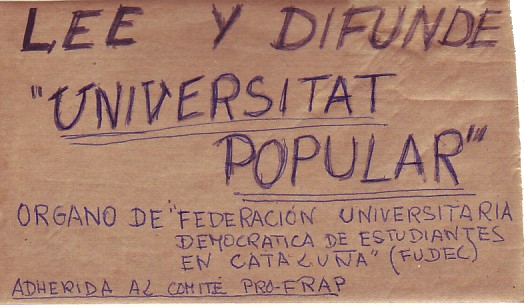 LEE Y DIFUNDE
"UNIVERSITAT
POPULAR"
ORGANO DE "FEDERACIÓN UNIVERSITARIA
DEMOCRATICA DE ESTUDIANTES
EN CATALUÑA" (FUDEC)
ADHERIDA AL COMITÉ PRO-FRAP